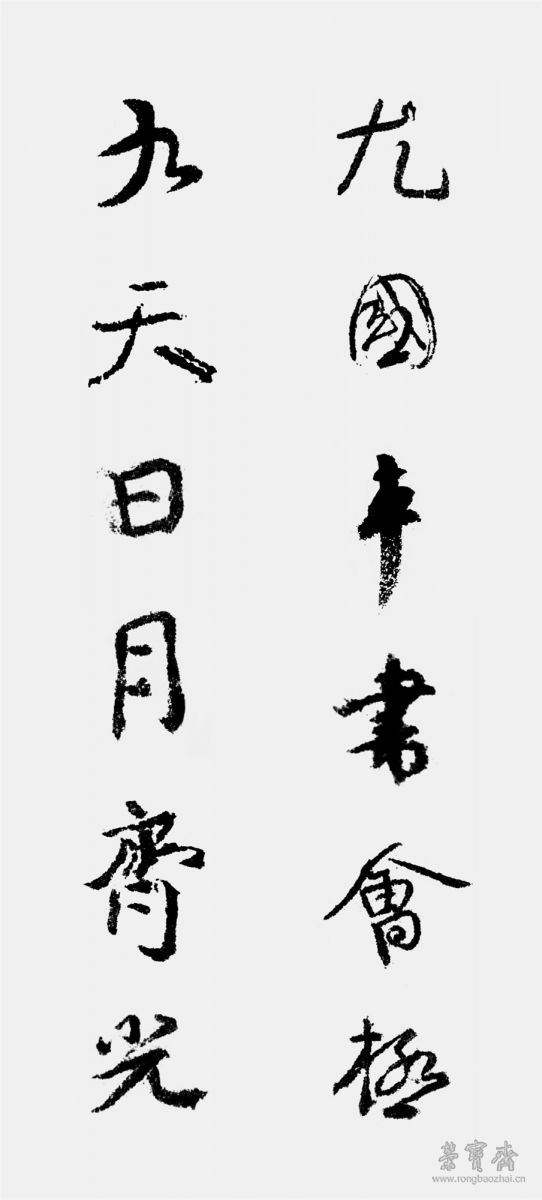 尤國車書會極
九天日月齊光
榮寶齋
www.rongbaozhai.cn